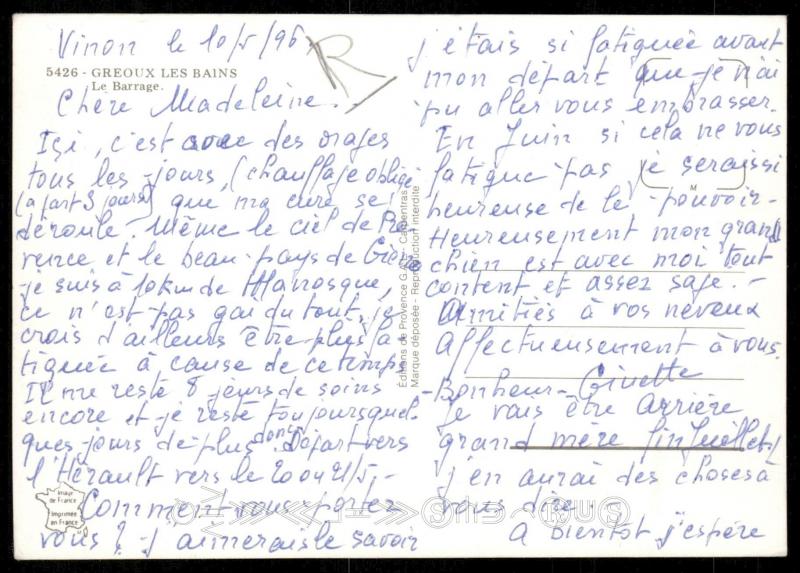 Vinon le 10/5/96
R
5426 - GREOUX LES BAINS
Le Barrage.
Chère Madeleine.
Ici, c'est avec des orages
tous les jours, (chauffage obligé
(à part 3 jours) que ma cure se
déroule. Même le ciel de Pro
vence et le beau pays de Giono
je suis à 10km de Manosque,
ce n'est pas gai du tout, je
crois d'ailleurs être plus fa-
tiguée à cause de ce temps
Il me reste 8 jours de soins
encore et je reste toujours quel-
ques jours de plus donc. Départ vers
l'Hérault vers le 20 ou 21/5.-
Comment vous portez
vous? j'aimerais le savoir
Image de France
Imprimée en France
Editions de Provence G.A.L. - Carpentras
Marque déposée - Reproduction interdite
j'étais si fatiguée avant
mon départ que je n'ai
pu aller vous embrasser.
En Juin si cela ne vous
fatigue pas, je serais si
M
heureuse de le pouvoir.
Heureusement mon grand
chien est avec moi tout
content et assez sage.-
Amitiés à vos neveux
Affectueusement à vous.
-Bonheur- Ginette
Je vais être Arrière
grand mère fin Juillet!
j'en aurai des choses à
vous dire.
A bientôt j'espère